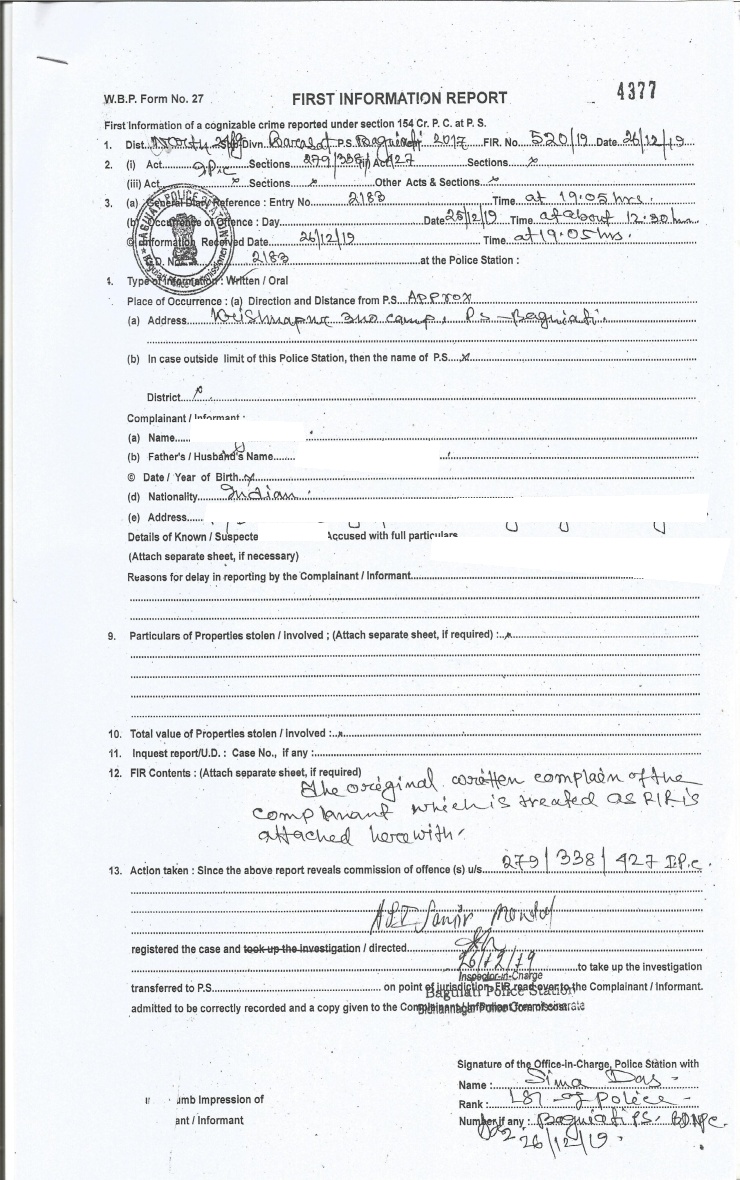 4377
W.B.P. Form No. 27 FIRST INFORMATION REPORT
First Information of a cognizable crime reported under section 154 Cr. P. C. at P. S.
1. Dist. North 24 Divn. Barasat P.S. Baguiati 2017 FIR. No. 520/19 Date 26/12/19
2. (i) Act IPC Sections 279/338/427 (ii) Act Sections x
(iii) Act x Sections x Other Acts & Sections x
3. (a) General Diary Reference : Entry No. 2183 Time at 19:05 hrs.
(b) Occurrence of Offence : Day Date 25/12/19 Time at about 12:30 hrs
© Information Received Date 26/12/19 Time at 19:05 hrs.
G.D. No. 2183 at the Police Station :
4. Type of Information : Written / Oral
Place of Occurrence : (a) Direction and Distance from P.S. Approx
(a) Address Krishnapur 3no camp, Ps - Baguiati.
(b) In case outside limit of this Police Station, then the name of P.S. x
District x
Complainant / Informant :
(a) Name
(b) Father's / Husband's Name
© Date / Year of Birth x
(d) Nationality Indian
(e) Address
Details of Known / Suspecte Accused with full particulars
(Attach separate sheet, if necessary)
Reasons for delay in reporting by the Complainant / Informant
9. Particulars of Properties stolen / Involved ; (Attach separate sheet, if required) : x
10. Total value of Properties stolen / Involved : x
11. Inquest report/U.D. : Case No., if any :
12. FIR Contents : (Attach separate sheet, if required)
The original written complain of the
complanant which is treated as FIR is
attached herewith.
13. Action taken : Since the above report reveals commission of offence (s) u/s. 279/338/427 I.P.C.
ASI Samir Mondal
registered the case and took up the investigation / directed
26/12/19 to take up the investigation
Inspector-in-Charge
transferred to P.S. on point of jurisdiction, FIR read over to the Complainant / Informant.
Baguiati Police Station
admitted to be correctly recorded and a copy given to the Complainant / Informant
Bidhannagar Police Commissionerate
Signature of the Office-in-Charge, Police Station with
Name : Sima Das
umb Impression of Rank : LSI of Police
ant / Informant Number if any : Baguiati P.S. BDNPC.
26/12/19